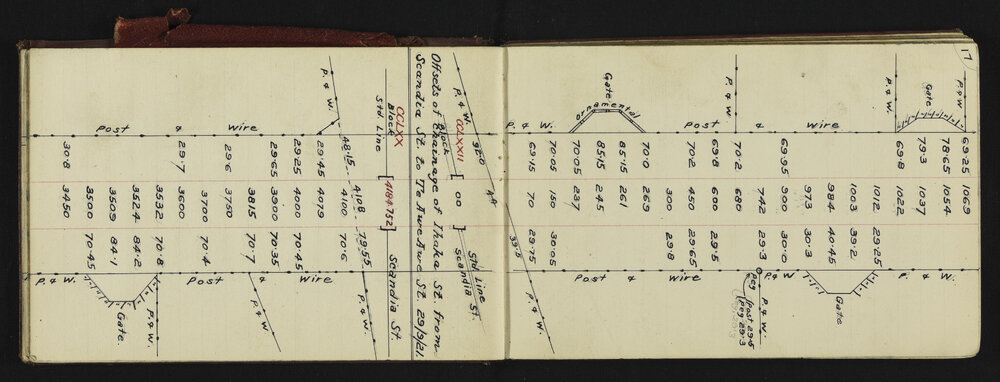 17
P & W 69.25 1069
78.65 1054
Gate 79.3 1037 P. & W.
P. & W. 69.8 1022
1012 29.25
1003 39.2
984 40.45 Gate
973 30.3
69.95 900 30.0
P & W
742 29.3 Peg Post 29.5
Peg 29.3
P. & W.
P & W 70.2 680
wire 69.8 600 29.5
&
Post 70.2 450 29.65 wire
300 29.8 &
70.0 269 Post
Gate 86.15 261
ornamental 85.15 245
70.05 237
P. & W. 70.05 150 30.05
69.15 70 29.75
P. & W.
39.5
48
32.0
P. & W. CCLXXII [ 00 ] Std Line
Block Scandia St.
Offsets of Chainage of Ihaka St. from
Scandia St. to Te Awe Awe St. 29/9/21.
CCLXX
Block [4184.752] Scandia St.
Std. Line
4108 79.55
P. & W. 48.15 4100 70.6 P. & W.
29.45 4079
29.25 4000 70.45
29.65 3900 70.35
wire 3815 70.7 wire
P. & W.
29.6 3750 &
& 3700 70.4 Post
29.7 3600
Post 3532 70.8 P. & W.
3524 84.2
3509 84.1 Gate.
3500 70.45
30.8 3450 P. & W.